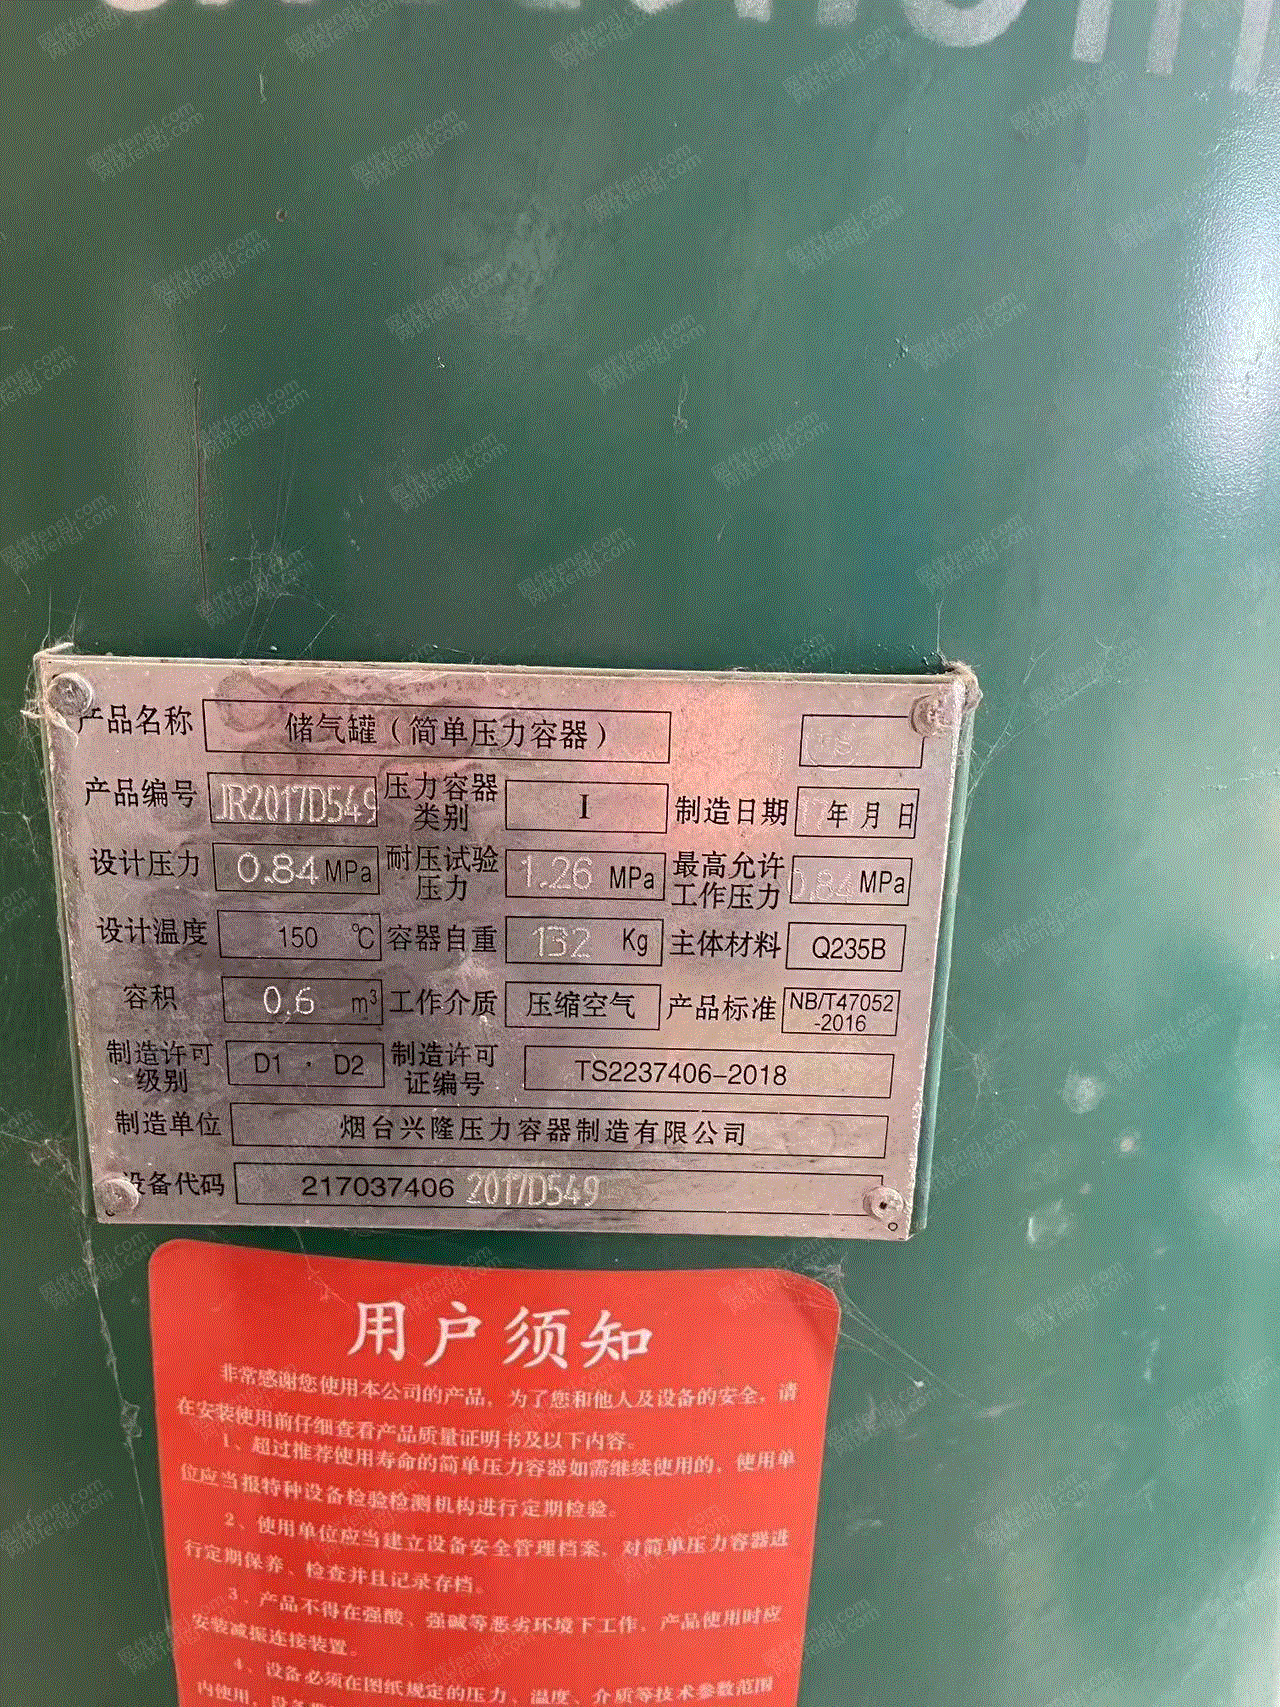 产品名称 储气罐(简单压力容器)
产品编号 JR2017D549 压力容器类别 I 制造日期 17年 月 日
设计压力 0.84 MPa 耐压试验压力 1.26 MPa 最高允许工作压力 0.84 MPa
设计温度 150 ℃ 容器自重 132 Kg 主体材料 Q235B
容积 0.6 m³ 工作介质 压缩空气 产品标准 NB/T47052-2016
制造许可级别 D1 · D2 制造许可证编号 TS2237406-2018
制造单位 烟台兴隆压力容器制造有限公司
设备代码 217037406 2017D549
用户须知
非常感谢您使用本公司的产品，为了您和他人及设备的安全，请
在安装使用前仔细查看产品质量证明书及以下内容。
1、超过推荐使用寿命的简单压力容器如需继续使用的，使用单
位应当报特种设备检验检测机构进行定期检验。
2、使用单位应当建立设备安全管理档案，对简单压力容器进
行定期保养、检查并且记录存档。
3、产品不得在强酸、强碱等恶劣环境下工作，产品使用时应
安装减振连接装置。
4、设备必须在图纸规定的压力、温度、介质等技术参数范围
内使用，设备
网优fengj.com